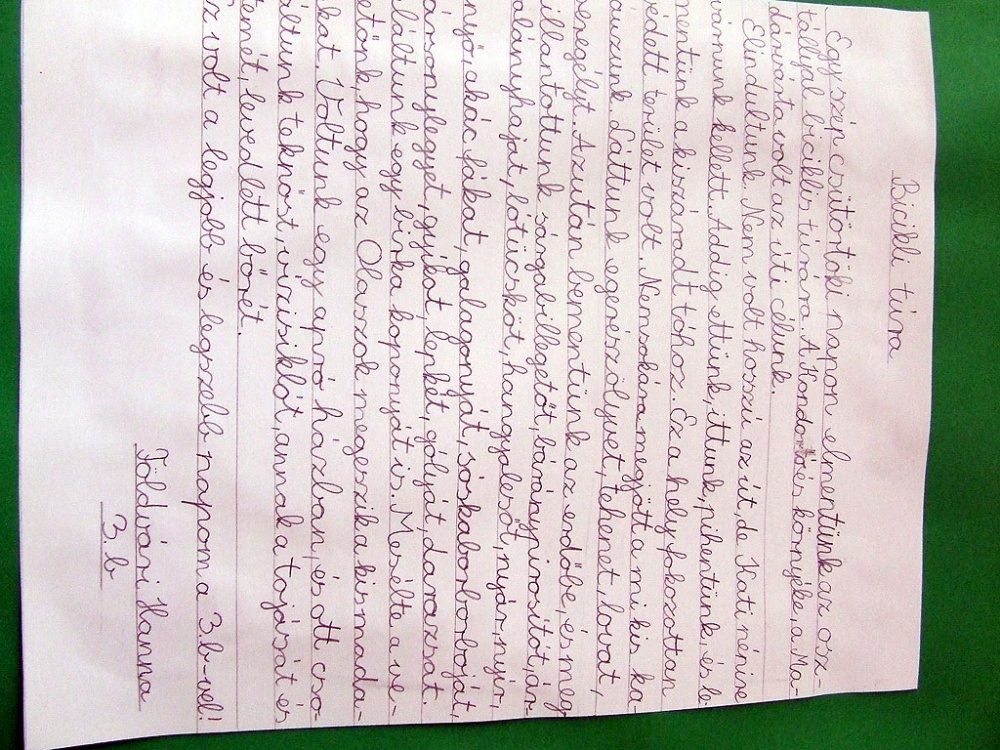 Bicikli túra
Egy szép csütörtöki napon elmentünk az osz-
tállyal biciklis túrára. A Kondor tó és környéke, a Ma-
dárvárta volt az úti célunk.
Elindultunk. Nem volt hosszú az út, de Kati nénire
várnunk kellett. Addig ettünk, ittunk, pihentünk, és le-
mentünk a kiszáradt tóhoz. Ez a hely fokozottan
védett terület volt. Nemsokára megjött a mi kis ka-
auzunk. Láttunk egerészölyvet, tehenet, lovat,
seregélyt. Azután bementünk az erdőbe, és meg
illantottunk sárgabillegetőt, báránypirosítót, ár-
alányhajat, lótücsköt, hangyalesőt, nyár, nyír,
nyjó, akác fákat, galagonyát, sóskaborbolyát,
ármonylegyet, gyíkot, lepkét, gólyát, darazsat.
aláltunk egy birka koponyát is. Mesélte a ve-
etőnk, hogy az Olaszok megeszik a kismada-
kat. Voltunk egy apró házban, és ott cso-
áltunk teknőst, vízisiklót, annak a tojását és
temét, levedlett bőrét.
z volt a legjobb és legszebb napom a 3.b-vel!
Földvári Hanna
3.b